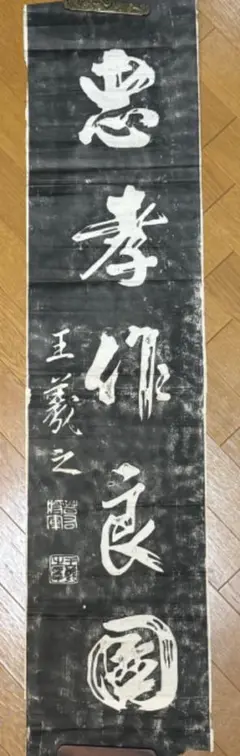 忠孝作良圖
王羲之